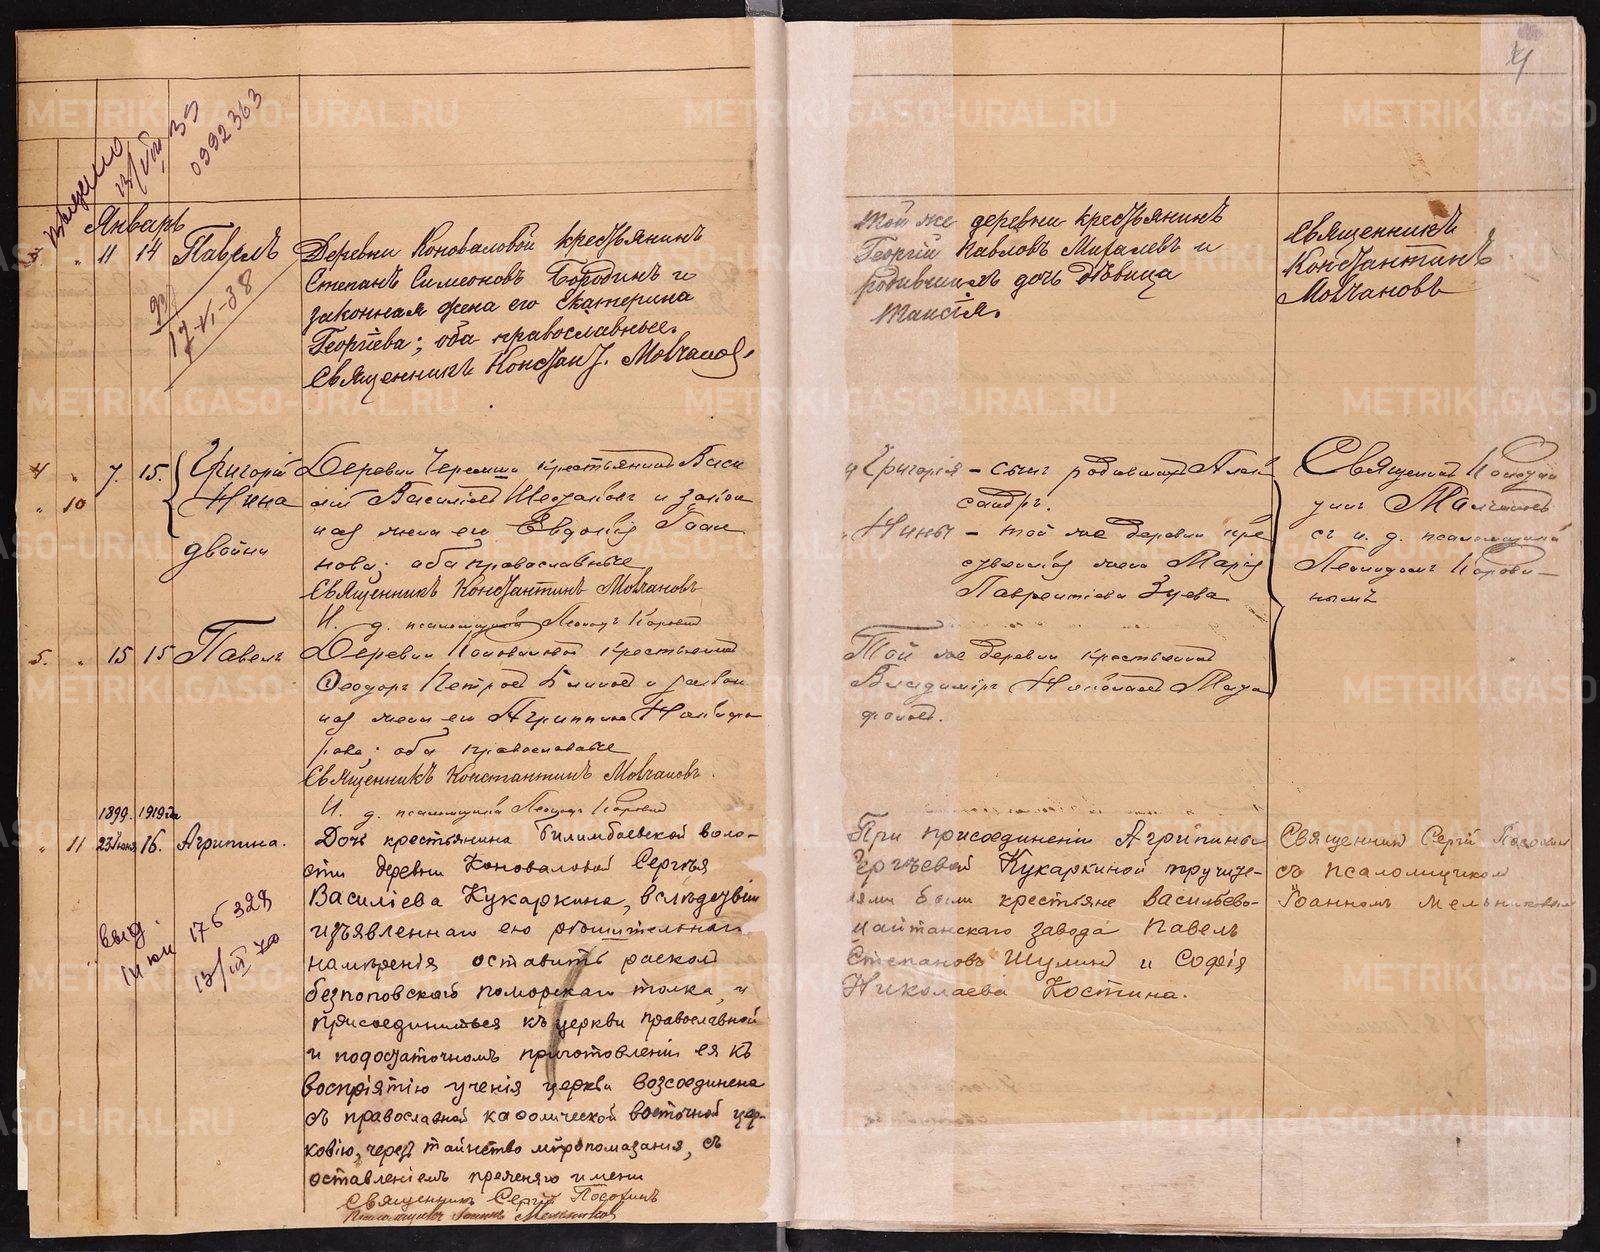 4
13/VIII 35
0992363
Январь
3. " 11 14 Павелъ
Деревни Коноваловой крестьянинъ
Степанъ Симеоновъ Бородинъ и
законная жена его Екатерина
Георгіева; оба православные.
Священникъ Констант. Молчановъ.
17-VI-38
Той же деревни крестьянинъ
Георгій Павловъ Михалевъ и
дочь дѣвица
Таисія.
Священникъ
Константинъ
Молчановъ
4 " 7. 15. Григорій
" 10 Нина
двойни
Деревни Черемши крестьянинъ Васи
лій Васильевъ и закон
ная жена его Евдокія Іоан
нова; оба православные
Священникъ Константинъ Молчановъ
И. д. псаломщика Леонидъ
Григорія – сынъ Алек
сандръ.
Нины – той же деревни кре
стьянская жена Марія
Лаврентіева Зуева
Священникъ Констан
тинъ Молчановъ
съ и. д. псаломщика
Леонидомъ
нымъ
5. " 15 15 Павелъ
Деревни Коноваловой крестьянинъ
Ѳеодоръ Петровъ и закон
ная жена его Агриппина
рова; оба православные
Священникъ Константинъ Молчановъ.
И. д. псаломщика Леонидъ
Той же деревни крестьянинъ
Владиміръ
1899. 1919 г.
" 11 23 Іюня 16. Агрипина.
Дочь крестьянина Билимбаевской воло-
сти деревни Коноваловой Сергѣя
Василіева Кукаркина, вслѣдствіи
изъявленнаго ею рѣшительнаго
намѣренія оставить расколъ
безпоповскаго поморскаго толка, и
присоединиться къ церкви православной
и по достаточномъ приготовленіи ея къ
воспріятію ученія церкви возсоединена
съ православной каѳолической восточной цер-
ковію, чрезъ таинство мѵропомазанія, съ
оставленіемъ прежняго имени
Священникъ Сергій
Псаломщикъ Іоаннъ Мельниковъ
выд.
176329
13/III 40
При присоединеніи Агрипины
Сергѣевой Кукаркиной поручите-
лями были крестьяне Васильево-
Шайтанскаго завода Павелъ
Степановъ Шулинъ и Софія
Николаева Костина.
Священникъ Сергій
съ псаломщикомъ
Іоанномъ Мельниковымъ
METRIKI.GASO-URAL.RU